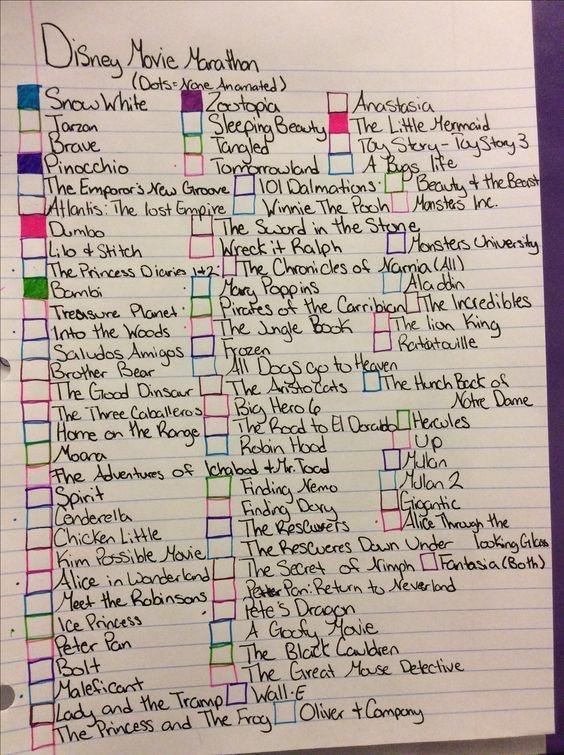 Disney Movie Marathon
(Dots=None Anamated)
Snow White
Tarzan
Brave
Pinocchio
The Emperor's New Groove
Atlantis: The lost Empire
Dumbo
Lilo & Stitch
The Princess Diaries 1+2
Bambi
Treasure Planet
Into the Woods
Saludos Amigos
Brother Bear
The Good Dinsaur
The Three Caballeros
Home on the Range
Moana
The Adventures of Ichabod + Mr. Toad
Spirit
Cenderella
Chicken Little
Kim Possible Movie
Alice in Wonderland
Meet the Robinsons
Ice Princess
Peter Pan
Bolt
Maleficant
Lady and the Tramp
The Princess and The Frog
Zootopia
Sleeping Beauty
Tangled
Tomorrowland
101 Dalmations
Winnie The Pooh
The Sword in the Stone
Wreck it Ralph
The Chronicles of Narnia (All)
Mary Poppins
Pirates of the Carribian
The Jungle Book
Frozen
All Dogs go to Heaven
The Aristocats
Big Hero 6
The Road to El Dorabdo
Robin Hood
Finding Nemo
Finding Dory
The Rescuers
The Rescueres Down Under
The Secret of Nimph
Peter Pan: Return to Neverland
Pete's Dragon
A Goofy Movie
The Black Cauldren
The Great Mouse Detective
Wall-E
Oliver + Company
Anastasia
The Little Mermaid
Toy Story - Toy Story 3
A Bugs life
Beauty & the Beast
Monsters Inc.
Monsters University
Aladdin
The Incredibles
The lion King
Ratatouille
The Hunch Back of
Notre Dame
Hercules
Up
Mulan
Mulan 2
Gigantic
Alice Through the
looking Glass
Fantasia (Both)